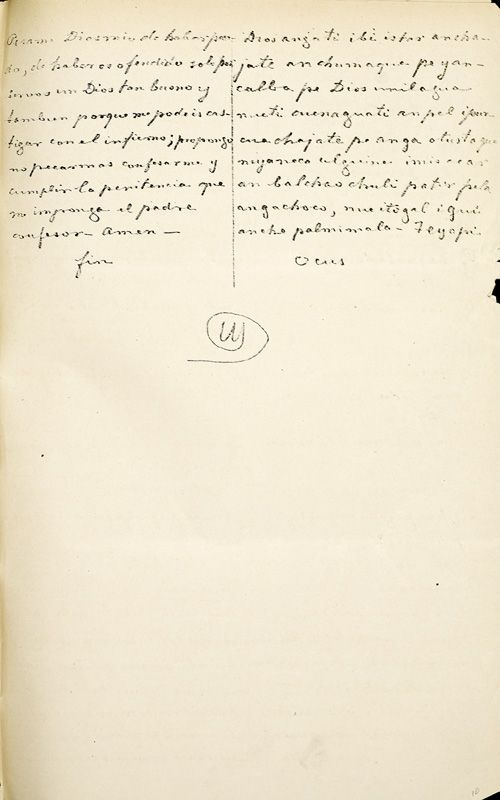 Pesame Dios mio de haber peca-
do, de haberos ofendido solo por
seros un Dios tan bueno y
tambien porque me podeis cas-
tigar con el infierno; propongo
no pecar mas confesarme y
cumplir la penitencia que
me imponga el padre
confesor - Amen -
fin
Dios angati ibi istar ancha-
jate an chumaque pe yan-
calba pe Dios unilagua
nueti cuenaguati an pel ipur-
cua chajate pe anga otustaque
nuyaneca ulguine imis cear
an balchao chuli patir pela
angachoco, nueitogal iqui
anche palmimala - Teyopi
Ocus
10